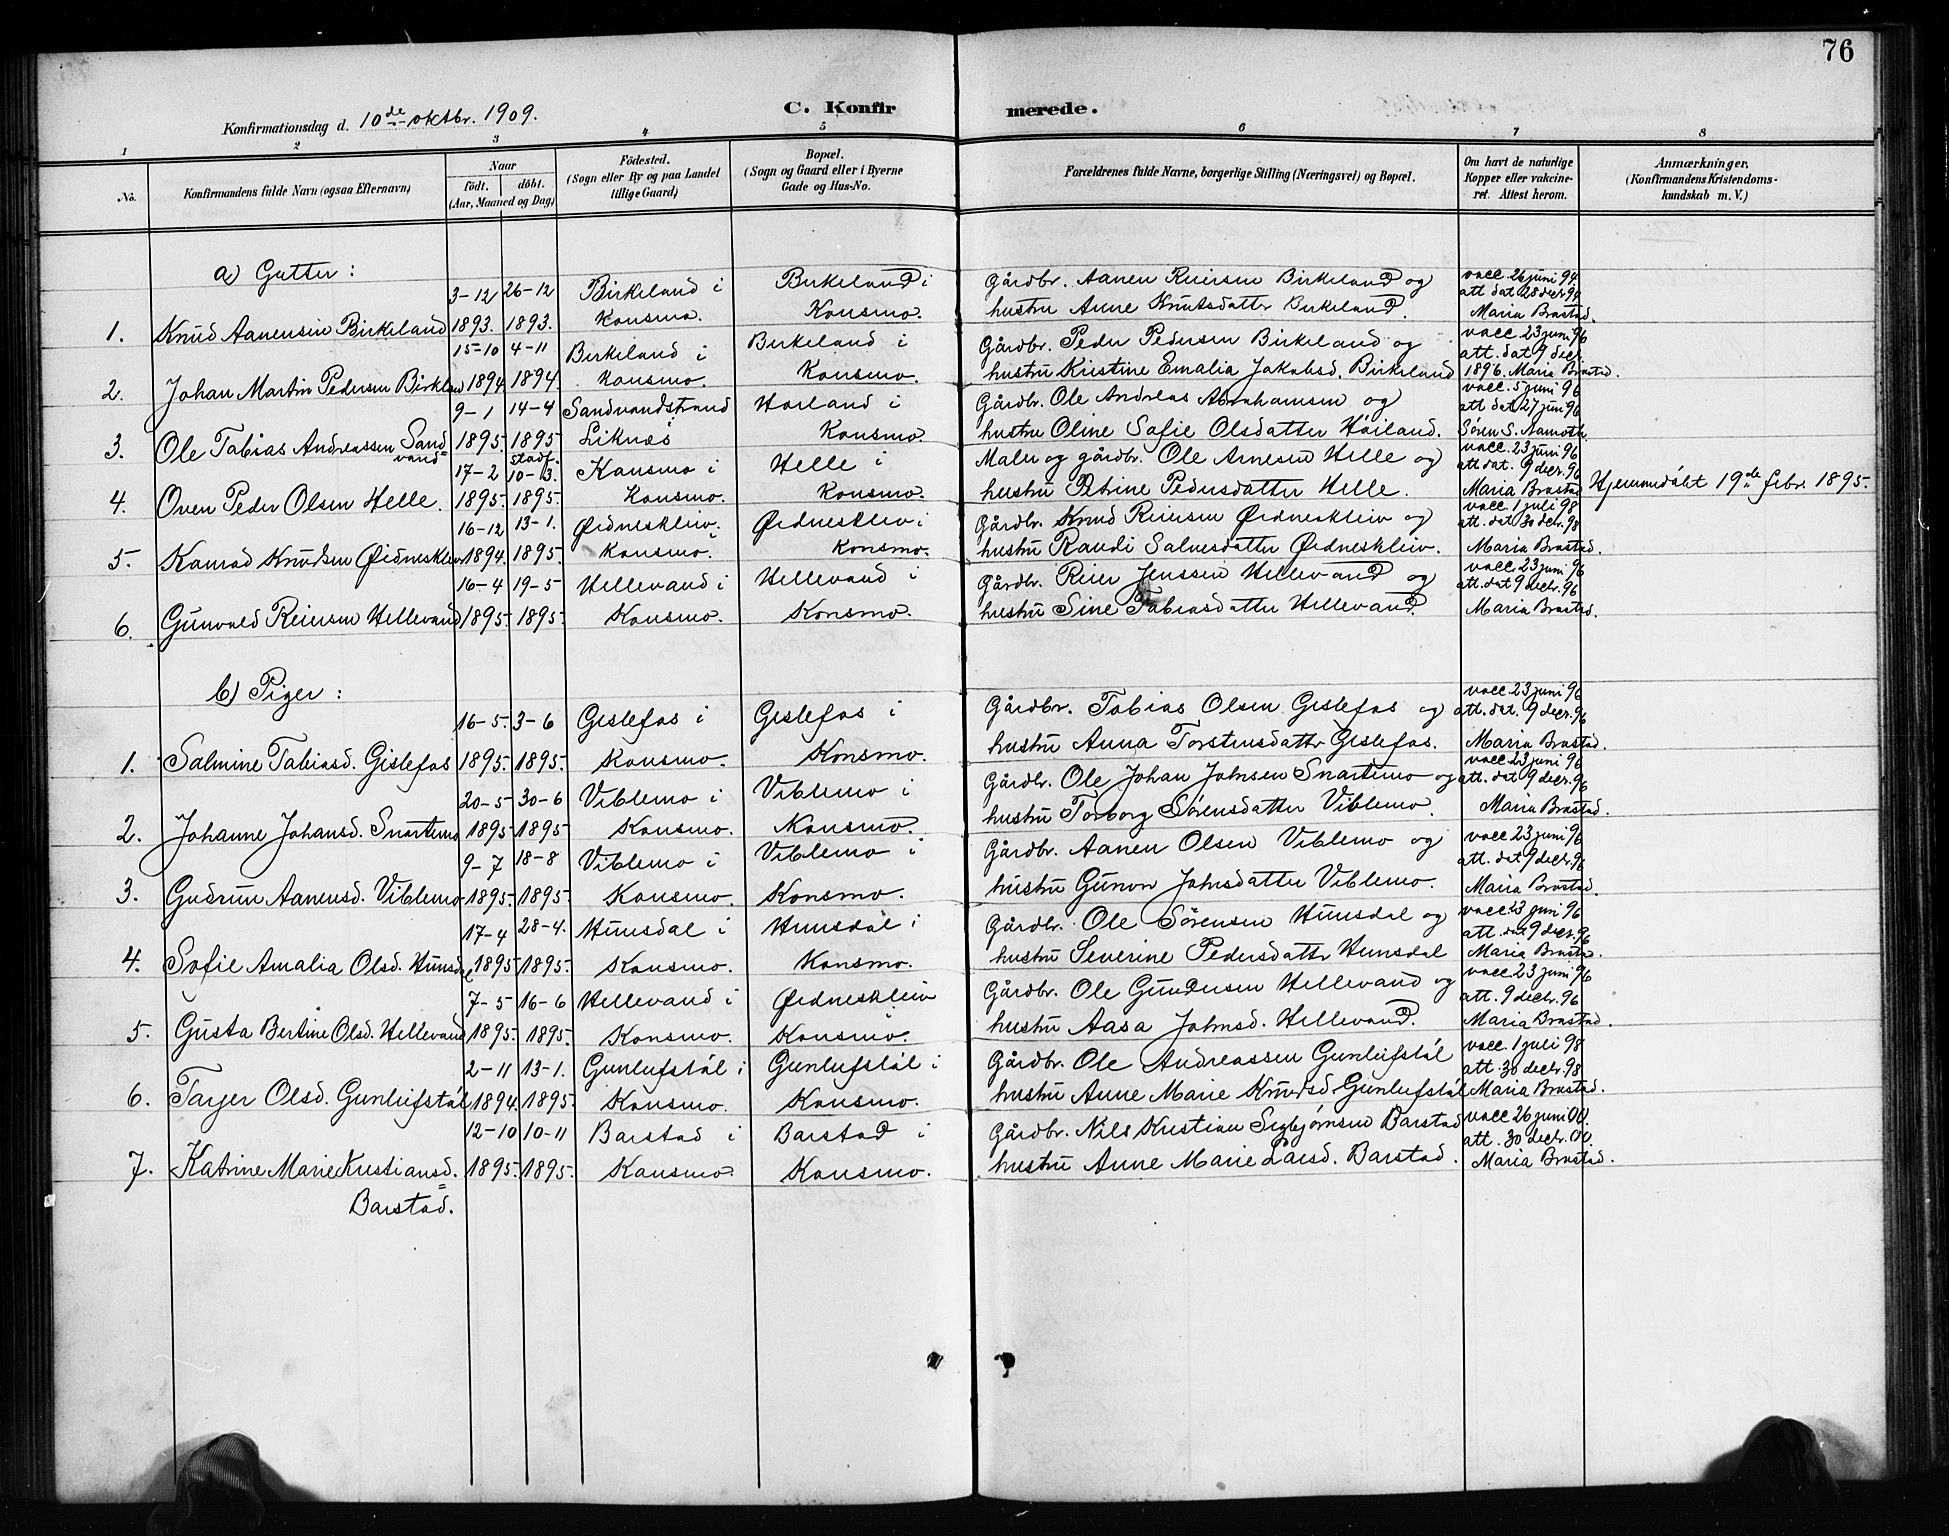 76
C. Konfirmerede.
Konfirmationsdag d. 10de oktbr. 1909.
1 2 3 4 5 6 7 8
No.
Konfirmandens fulde Navn (ogsaa Efternavn)
Naar
födt. döbt.
(Aar, Maaned og Dag)
Födested.
(Sogn eller By og paa Landet
tillige Gaard)
Bopæl.
(Sogn og Gaard eller i Byerne
Gade og Hus-No.
Forældrenes fulde Navne, borgerlige Stilling (Næringsvei) og Bopæl.
Om havt de naturlige
Kopper eller vakcine-
ret. Attest herom.
Anmærkninger.
(Konfirmandens Kristendoms-
kundskab m. V.)
a) Gutter:
3-12 26-12 Birkeland i Birkeland i Gårdbr. Aanen Reiersen Birkeland og vacc. 26 juni 94.
att dat 28 decr 94
1. Knud Aanensen Birkeland 1893. 1893. Konsmo. Konsmo. hustru Anne Knutsdatter Birkeland. Maria Brastad.
15-10 4-11 Birkeland i Birkeland i Gårdbr. Peder Pedersen Birkeland og vacc. 23 juni 96
att. dat 9 decr.
2. Johan Martin Pedersen Birkland 1894 1894. Konsmo. Konsmo. hustru Kristine Emalia Jakobsd. Birkeland 1896. Maria Brastad.
9-1 14-4 Sandvandstrand Hoiland i Gårdbr. Ole Andreas Abrahamsen og vacc. 5 juni 96
att dat 27 juni 96
3. Ole Tobias Andreassen Sand 1895. 1895 Liknes Konsmo. hustru Oline Sofie Olsdatter Höiland. Sören S. Aamoth
vand stadf.
17-2 10-3. Konsmo i Helle i Maler og gårdbr. Ole Arnesen Helle og vacc. 23 juni 96
att dat. 9 decr. 96
4. Oven Peder Olsen Helle. 1895. 1895. Konsmo. Konsmo. hustru Petrine Pedersdatter Helle. Maria Brastad Hjemmedöbt 19de febr. 1895.
16-12 13-1. Øidneskleiv. Øidneskleiv i Gårdbr. Knud Reiersen Øidneskleiv og vacc. 1 juli 98
att. dat 30 decr. 98
5. Konrad Knudsen Øidneskleiv 1894. 1895. Konsmo. Konsmo. hustru Randi Salvesdatter Øidneskleiv. Maria Brastad.
16-4 19-5 Hellevand i Hellevand i Gårdbr. Reier Jenssen Hellevand og vacc. 23 juni 96
att. dat 9 decr. 96
6. Gunvald Reiersen Hellevand 1895. 1895. Konsmo. Konsmo. hustru Sine Tobiasdatter Hellevand. Maria Brastad.
b) Piger:
16-5. 3-6 Geslefos i Geslefos i Gårdbr. Tobias Olsen Geslefos og vacc. 23 juni 96
att. dat. 9 decr. 96
1. Salmine Tobiasd. Gislefos 1895. 1895. Konsmo. Konsmo. hustru Anna Torstensdatter Geslefos. Maria Brastad.
20-5 30-6 Viblemo i Viblemo i Gårdbr. Ole Johan Johnsen Snartemo og vacc. 23 juni 96
att. dat 9 decr. 96
2. Johanne Johansd. Snartemo 1895 1895 Konsmo. Konsmo. hustru Torborg Sörensdatter Viblemo. Maria Brastad.
9-7 18-8 Viblemo i Viblemo i Gårdbr. Aanen Olsen Viblemo og vacc. 23 juni 96
att. dat 9 decr. 96
3. Gudrun Aanensd. Viblemo 1895. 1895. Konsmo. Konsmo. hustru Gunvor Johnsdatter Viblemo. Maria Brastad.
17-4 28-4. Hunsdal i Hunsdal i Gårdbr. Ole Sörensen Hunsdal og vacc. 23 juni 96
att. dat 9 decr. 96
4. Sofie Amalia Olsd. Hunsdal 1895 1895. Konsmo. Konsmo. hustru Severine Pedersdatter Hunsdal Maria Brastad.
7-5 16-6 Hellevand i Øidneskleiv Gårdbr. Ole Gundersen Hellevand og vacc. 23 juni 96
att. 9 decr. 96
5. Gusta Bertine Olsd. Hellevand 1895. 1895. Konsmo. Konsmo. hustru Aasa Johnsd. Hellevand. Maria Brastad.
2-11 13-1. Gunlufstöl i Gunlufstöl i Gårdbr. Ole Andreassen Gunleifstöl vacc. 1 juli 98
att. 30 decr. 98
6. Tarjer Olsd. Gunleifstöl 1894. 1895. Konsmo. Konsmo. hustru Anne Marie Knudsd. Gunleifstöl Maria Brastad.
12-10 10-11 Barstad i Barstad i Gårdbr. Nils Kristian Sigbjørnsen Barstad vacc. 26 juni 00.
att. 30 decr. 00.
7. Katrine Marie Kristiansd. 1895. 1895. Konsmo. Konsmo. hustru Anne Marie Larsd. Barstad. Maria Brastad.
Barstad.